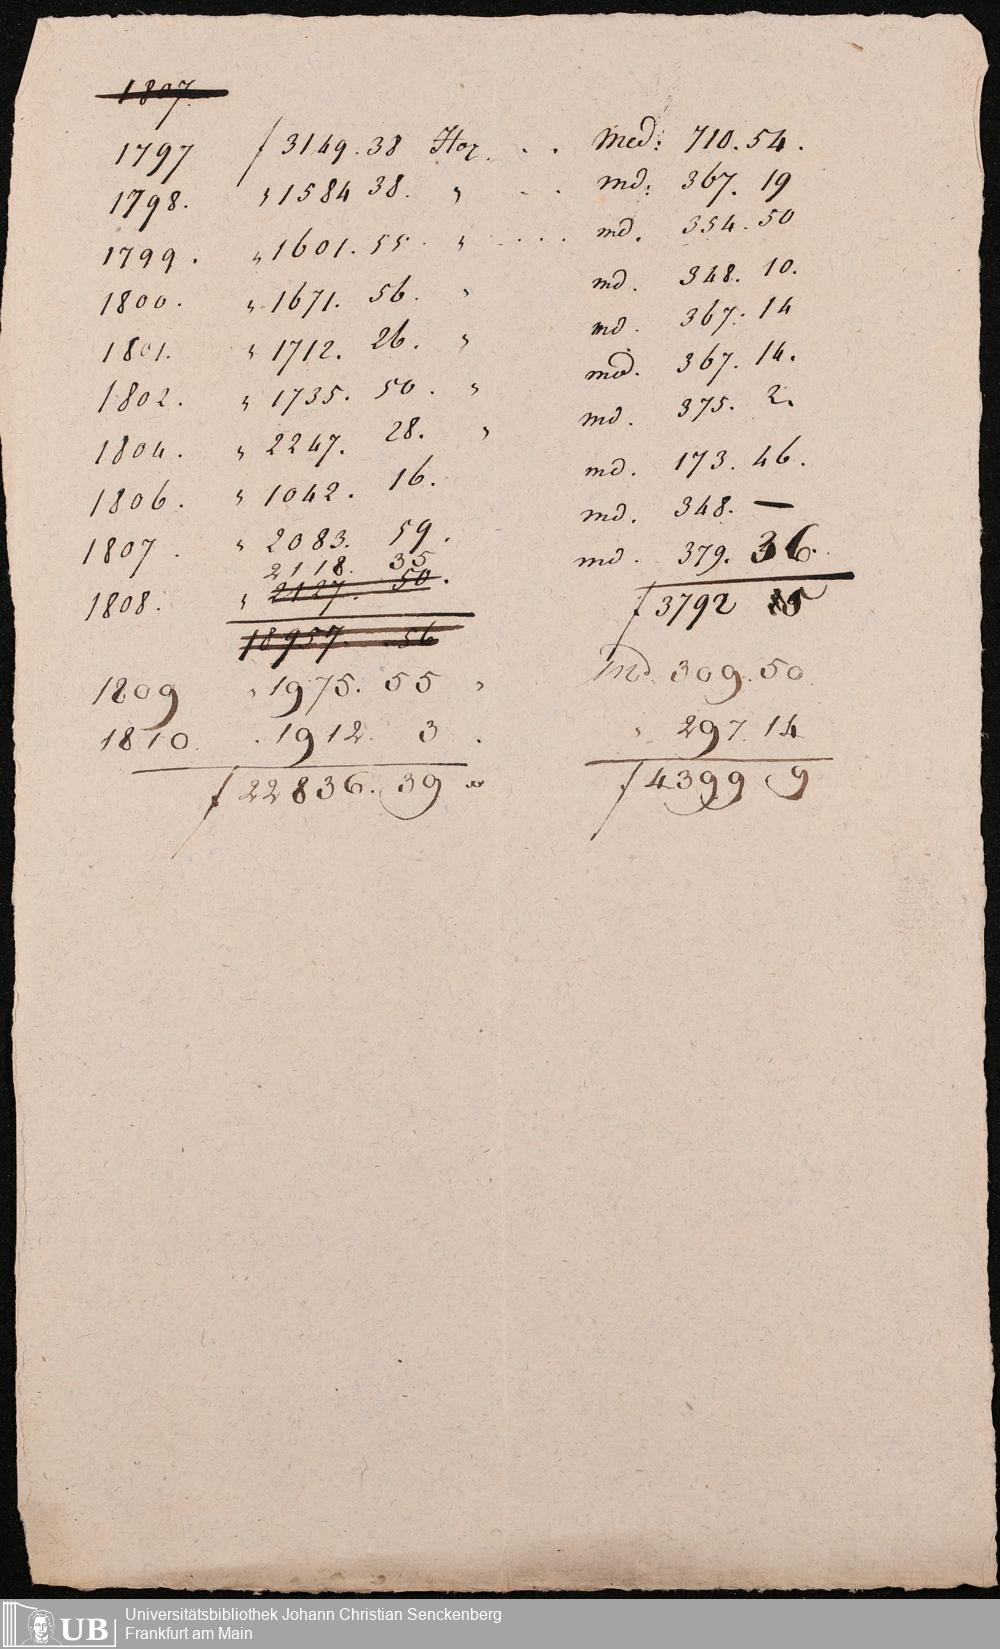 1807.
1797 f 3149. 38 Hoz. . . Med: 710. 54.
1798. " 1584 38. " . . md: 367. 19
1799. " 1601. 55. " . . . . md. 354. 50
1800. " 1671. 56. " md. 348. 10.
1801. " 1712. 26. " md. 367. 14
1802. " 1735. 50. " md. 367. 14.
1804. " 2247. 28. " md. 375. 2.
1806. " 1042. 16. md. 173. 46.
1807. " 2083. 59. md. 348. —
2118. 35
1808. " 2127. 50. md. 379. 36.
18957. 56 f 3792 5
1809 " 1975. 55 " Md. 309. 50
1810. . 1912. 3. " 297. 14
f 22836. 39 f 4399 9
UB Universitätsbibliothek Johann Christian Senckenberg
Frankfurt am Main